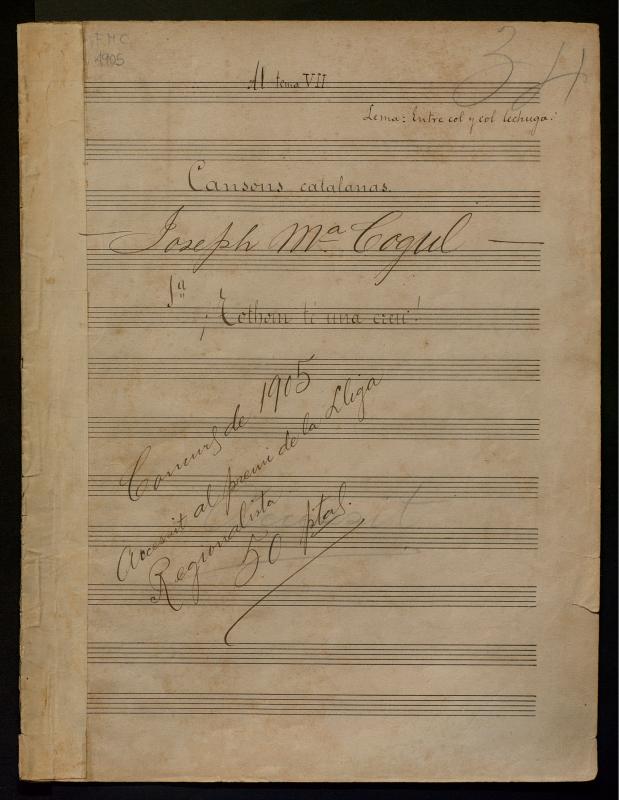 F M C
1905
34
Al tema VII
Lema: Entre col y col lechuga.
Cansons catalanas.
— Joseph Mª Cogul —
1ª
¡Tothom té una creu!
Concurs de 1905
Accessit al premi de la Lliga
Regionalista
50 ptas.